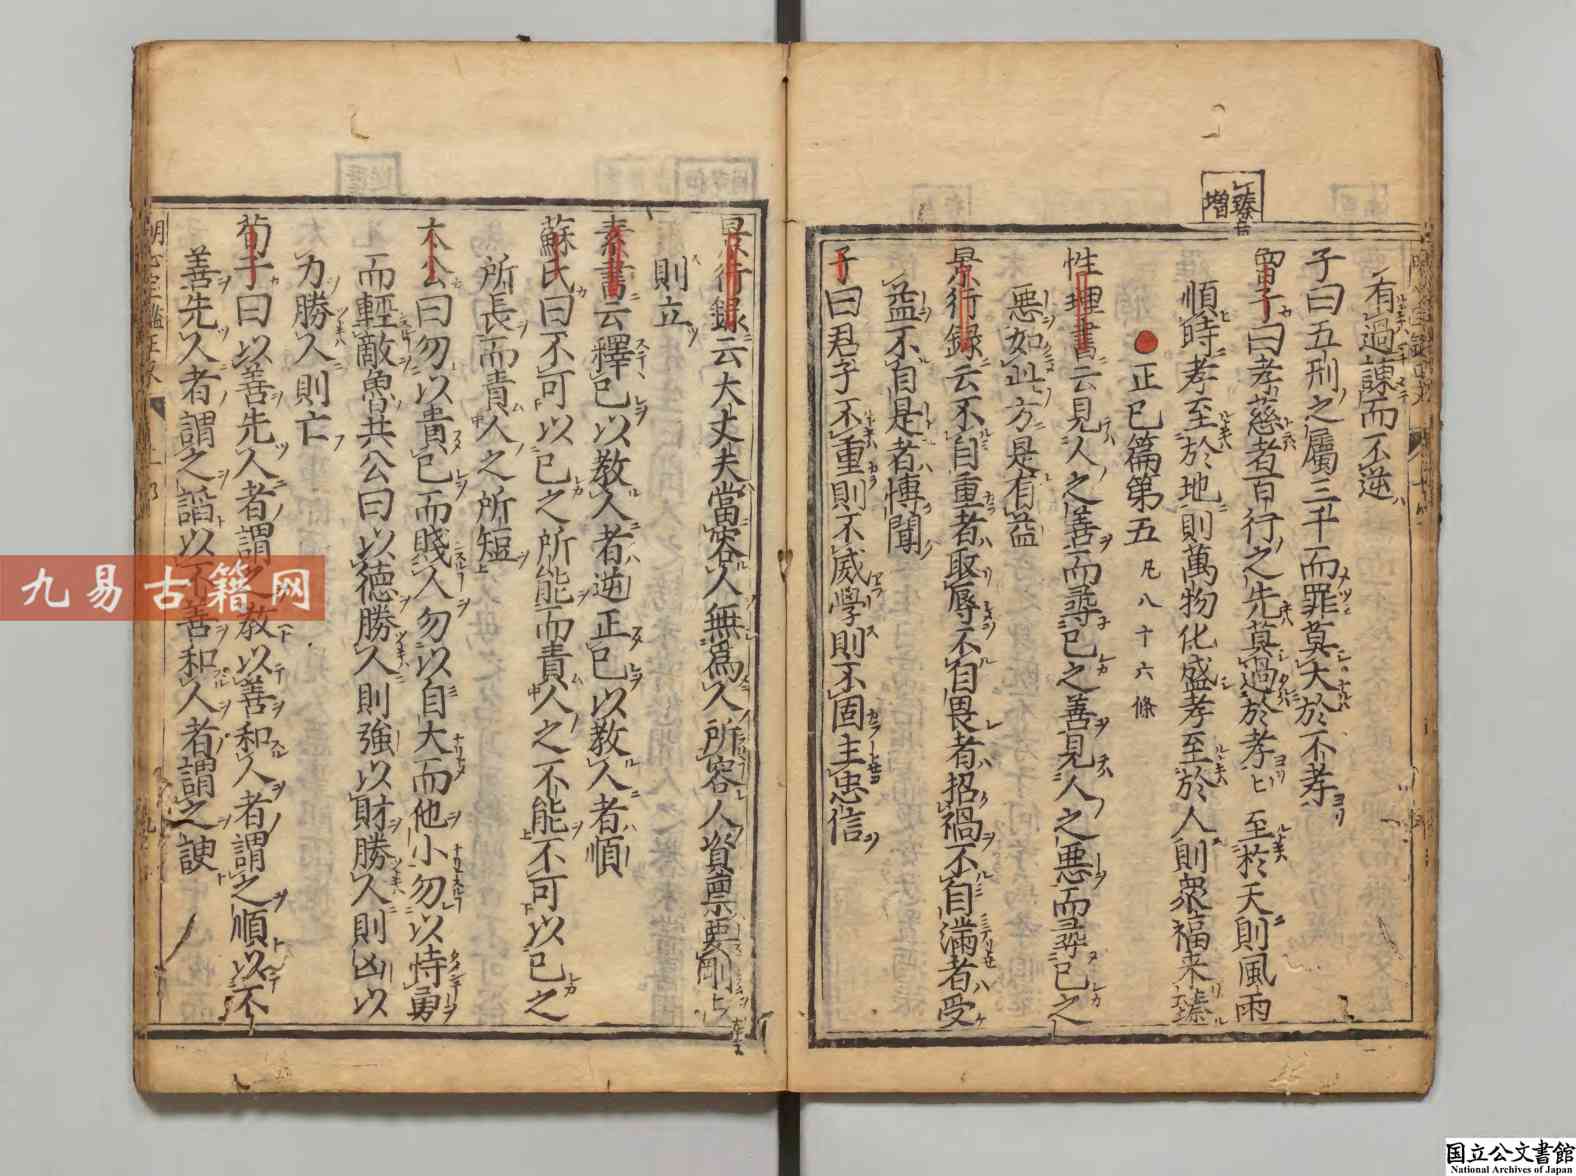 臻音
增
有過諫而不逆
子曰五刑之屬三千而罪莫大於不孝
曾子曰孝慈者百行之先莫過於孝ヒ至於天則風雨
順時孝至於地則萬物化盛孝至於人則衆福来臻
正己篇第五 凡八十六條
性理書云見人之善而尋己之善見人之悪而尋己之
悪如此方是有益
景行録云不自重者取辱不自畏者招禍不自滿者受
益不自是者博聞
子曰君子不重則不威學則不固主忠信
景行録云大丈夫當容人無爲人所容人資禀要剛ヒ
則立
素書云釋己以教人者逆正己以教人者順
蘇氏曰不可以己之所能而責人之不能不可以己之
所長而責人之所短
太公曰勿以貴己而賎人勿以自大而他小勿以恃勇
而輕敵魯共公曰以徳勝人則強以財勝人則凶以
力勝人則亡
荀子曰以善先人者謂之教以善和人者謂之順以不
善先人者謂之謟以不善和人者謂之諛
九易古籍网
国立公文書館
National Archives of Japan